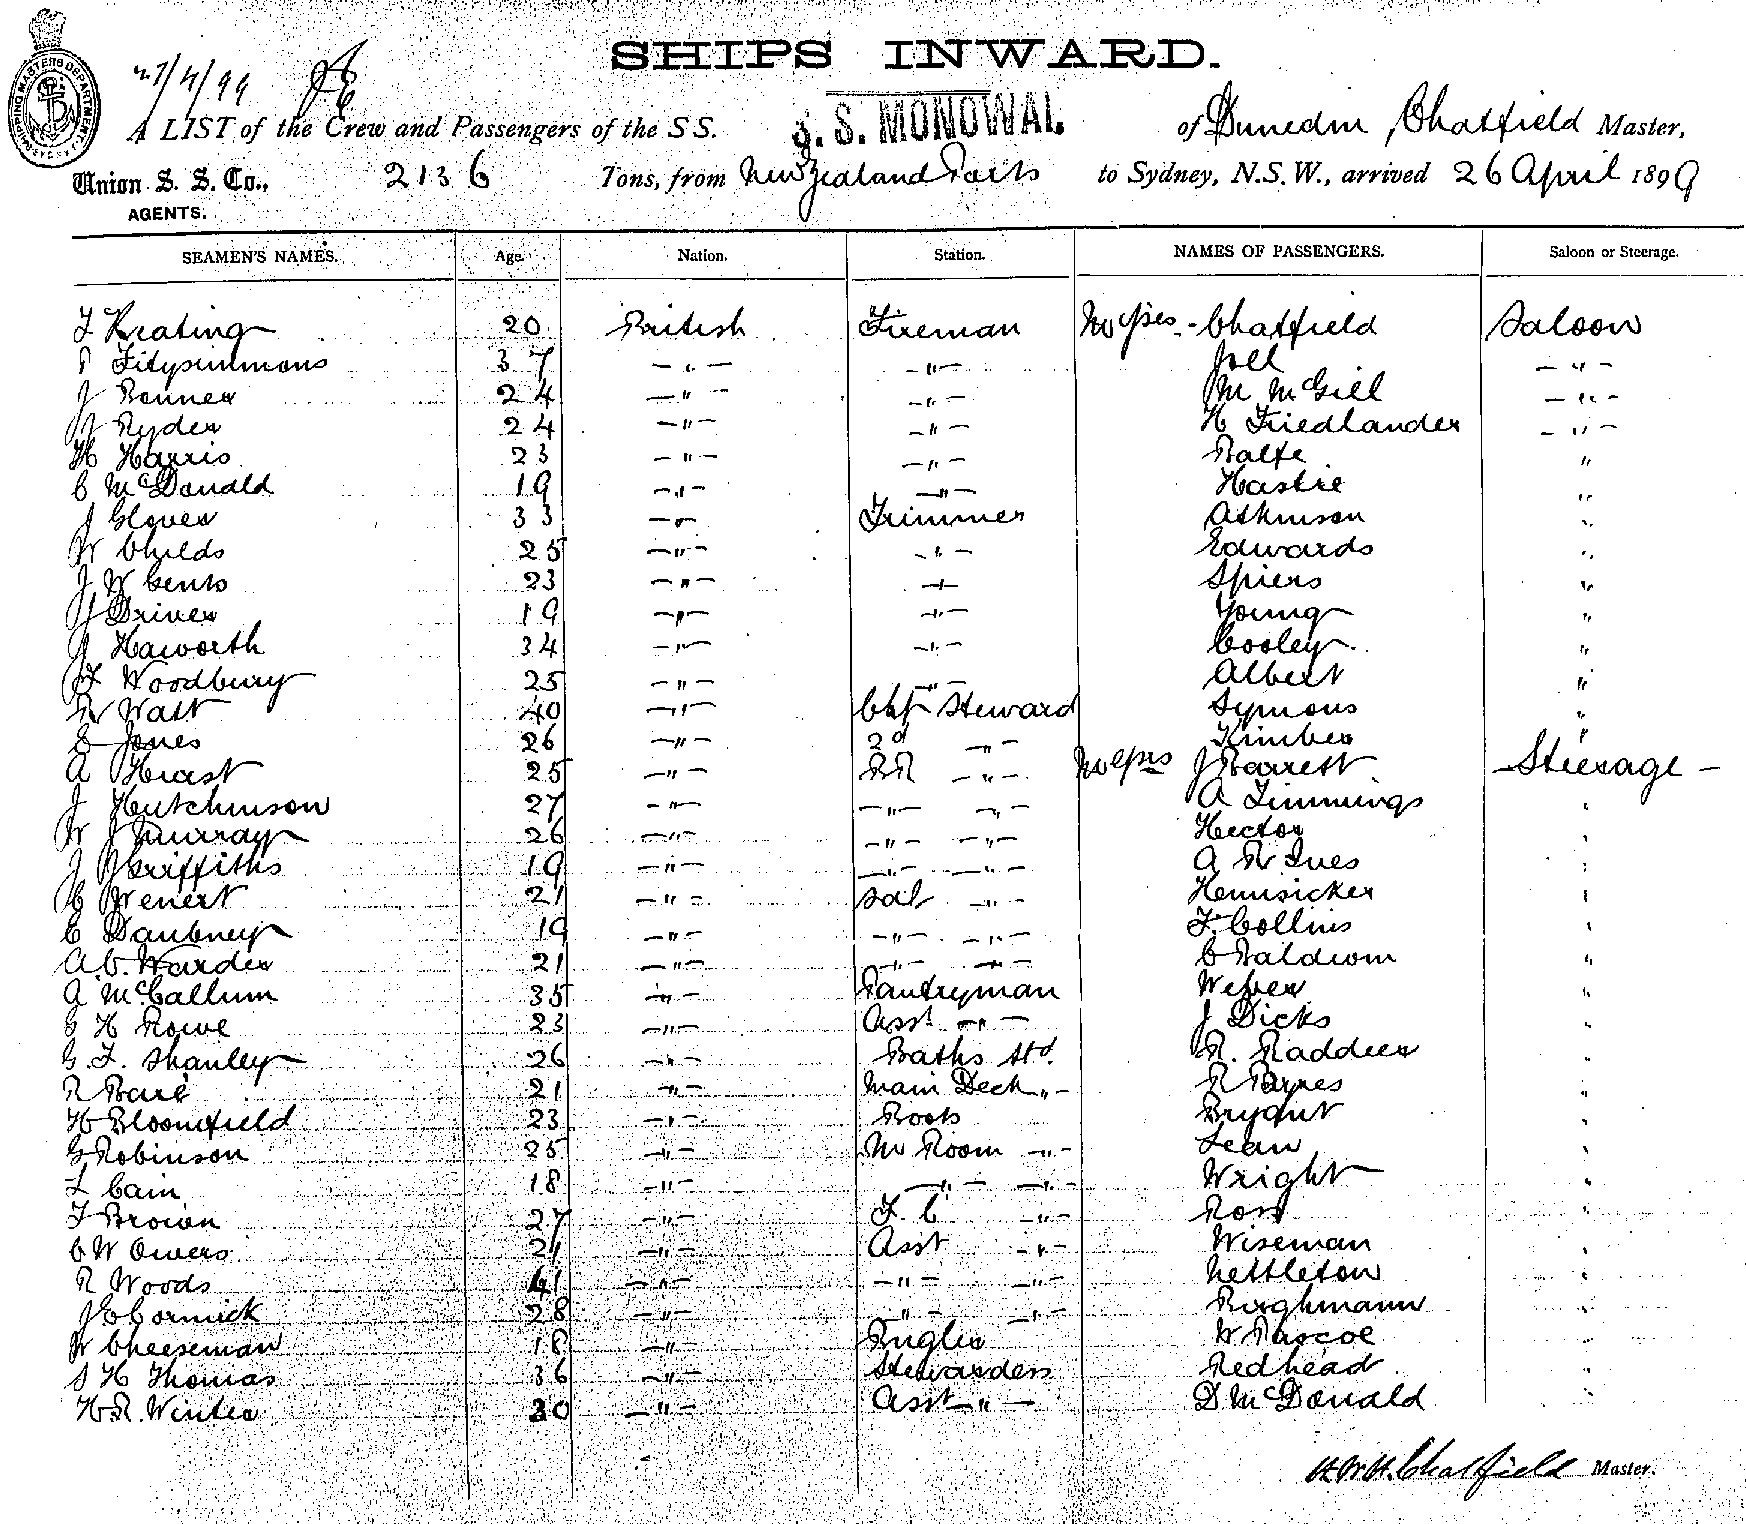 SHIPS INWARD.
27/4/99
A LIST of the Crew and Passengers of the SS. S. S. MONOWAI. of Dunedin, Chatfield Master,
Union S. S. Co., 2136 Tons, from New Zealand Ports to Sydney, N.S.W., arrived 26 April 1899
AGENTS.
SEAMEN'S NAMES. Age. Nation. Station. NAMES OF PASSENGERS. Saloon or Steerage.
F Keating 20 British Fireman Chatfield Saloon
P Fitzsimmons 37 -"- -"- Joll -"-
J Renner 24 -"- -"- M McGill -"-
J Ryder 24 -"- -"- H Friedlander -"-
H Harris 23 -"- -"- Ralfe "
C McDonald 19 -"- -"- Hastie "
J Glover 33 -"- Trimmer Atkinson "
W Childs 25 -"- -"- Edwards "
J W Cents 23 -"- -"- Spiers "
J Driver 19 -"- -"- Young "
J Haworth 34 -"- -"- Cooley "
F Woodbury 25 -"- -"- Albert "
W Watt 40 -"- Chf Steward Symons "
E Jones 26 -"- 2d -"- Kimber "
A Hurst 25 -"- RR -"- J Barrett Steerage
J Hutchinson 27 -"- -"- -"- A Timmings "
W J Murray 26 -"- -"- -"- Hector "
J Griffiths 19 -"- -"- -"- A W Ives "
C Wenert 21 -"- Sal -"- Hennsicker "
C Daubney 19 -"- -"- -"- F. Collins "
A. C. Warder 21 -"- -"- -"- C Baldwin "
A McCallum 35 -"- Pantryman Weber "
G H Rowe 23 -"- Asst -"- J Dicks "
G. F. Shanley 26 -"- Baths Std. R. Radder "
R Bare 21 -"- Main Deck "- R Byres "
H Bloomfield 23 -"- Boots Bryant "
G Robinson 25 -"- M Room -"- Lean "
F Cain 18 -"- -"- -"- Wright "
F Brown 27 -"- F. C -"- Ross "
C W Owers 24 -"- Asst -"- Wiseman "
R Woods 41 -"- -"- -"- Nettleton "
J E Cormick 28 -"- "- -"- Berghmann "
W Cheeseman 18 -"- Bugler W Pascoe "
S H Thomas 36 -"- Stewardess Redhead "
H. R. Winter 30 -"- Asst -"- D. McDonald "
H.W.H. Chatfield Master.